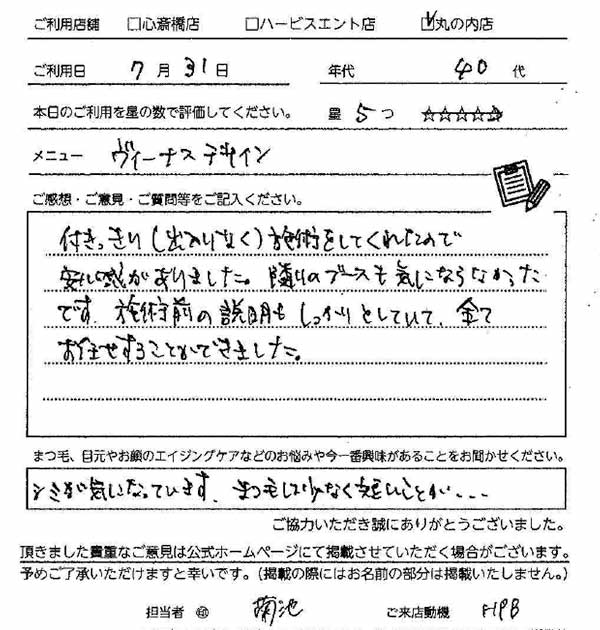 ご利用店舗 □心斎橋店 □ハービスエント店 ☑丸の内店
ご利用日 7月31日 年代 40代
本日のご利用を星の数で評価してください。 星5つ ☆☆☆☆☆
メニュー ヴィーナスデザイン
ご感想・ご意見・ご質問等をご記入ください。
付きっきり(出入りなく)施術をしてくれたので
安心感がありました。隣りのブースも気にならなかった
です。施術前の説明もしっかりとしていて、全て
お任せすることができました。
まつ毛、目元やお顔のエイジングケアなどのお悩みや今一番興味があることをお聞かせください。
シミが気になっています。まつ毛も少なく短いことが...
ご協力いただき誠にありがとうございました。
頂きました貴重なご意見は公式ホームページにて掲載させていただく場合がございます。
予めご了承いただけますと幸いです。(掲載の際にはお名前の部分は掲載いたしません。)
担当者 ㊞ 菊池 ご来店動機 HPB